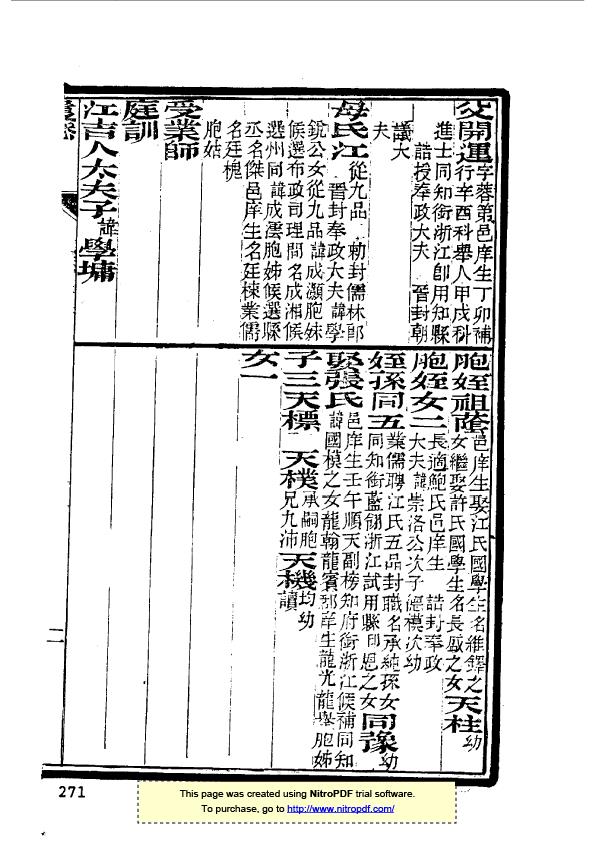 父開運字蓉第邑庠生丁卯補
行辛酉科舉人甲戌科
進士同知銜浙江即用知縣
誥授奉政大夫 晉封朝
議大
夫
母氏江從九品 勅封儒林郎
晉封奉政大夫諱學
銳公女從九品諱成灝胞妹
候選布政司理問名成湘候
選州同諱成澐胞姊候選縣
丞名傑邑庠生名廷棟業儒
名廷槐
胞姑
受業師
庭訓
江吉人太夫子諱學墉
胞姪祖蔭邑庠生娶江氏國學生名維鐸之
女繼娶許氏國學生名長盛之女天柱幼
胞姪女二長適鮑氏邑庠生 誥封奉政
大夫諱崇洛公次子德模次幼
姪孫同五業儒聘江氏五品封職名承純孫女
同知銜藍翎浙江試用縣印恩之女同豫幼
娶張氏邑庠生壬午順天副榜知府銜浙江候補同知
諱國模之女龍翰龍賓郡庠生龍光龍舉胞姊
子三天標 天樸承嗣胞
兄九沛天機均幼
讀
女一
二
271
This page was created using NitroPDF trial software.
To purchase, go to http://www.nitropdf.com/